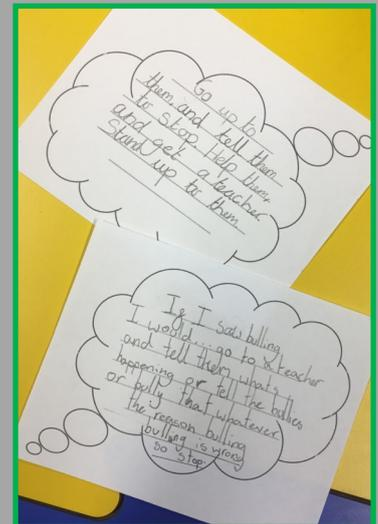 Go up to
them and tell them
to stop Help them,
and get a teacher
Stand up to them
If I saw bulling
I would... go to a teacher
and tell them whats
happening or tell the bullies
or bully that whatever
the reason bulling
bulling is wrong
so stop.